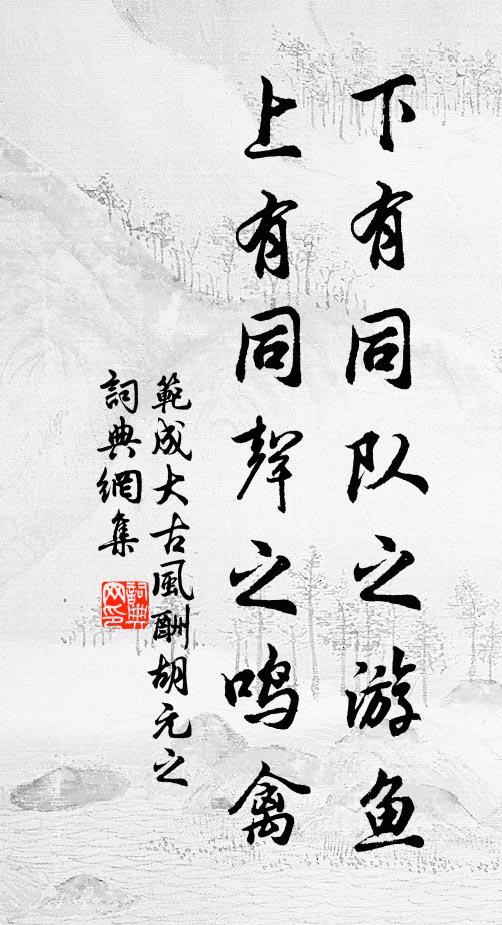 下有同队之游鱼
上有同聲之鸣禽
範成大古風酬胡元之
詞典網集
詞典網印